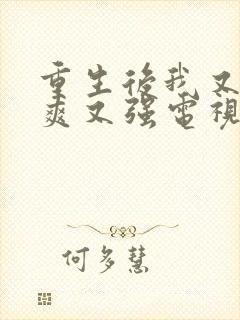 重生後我又
爽又强電視
何多慧